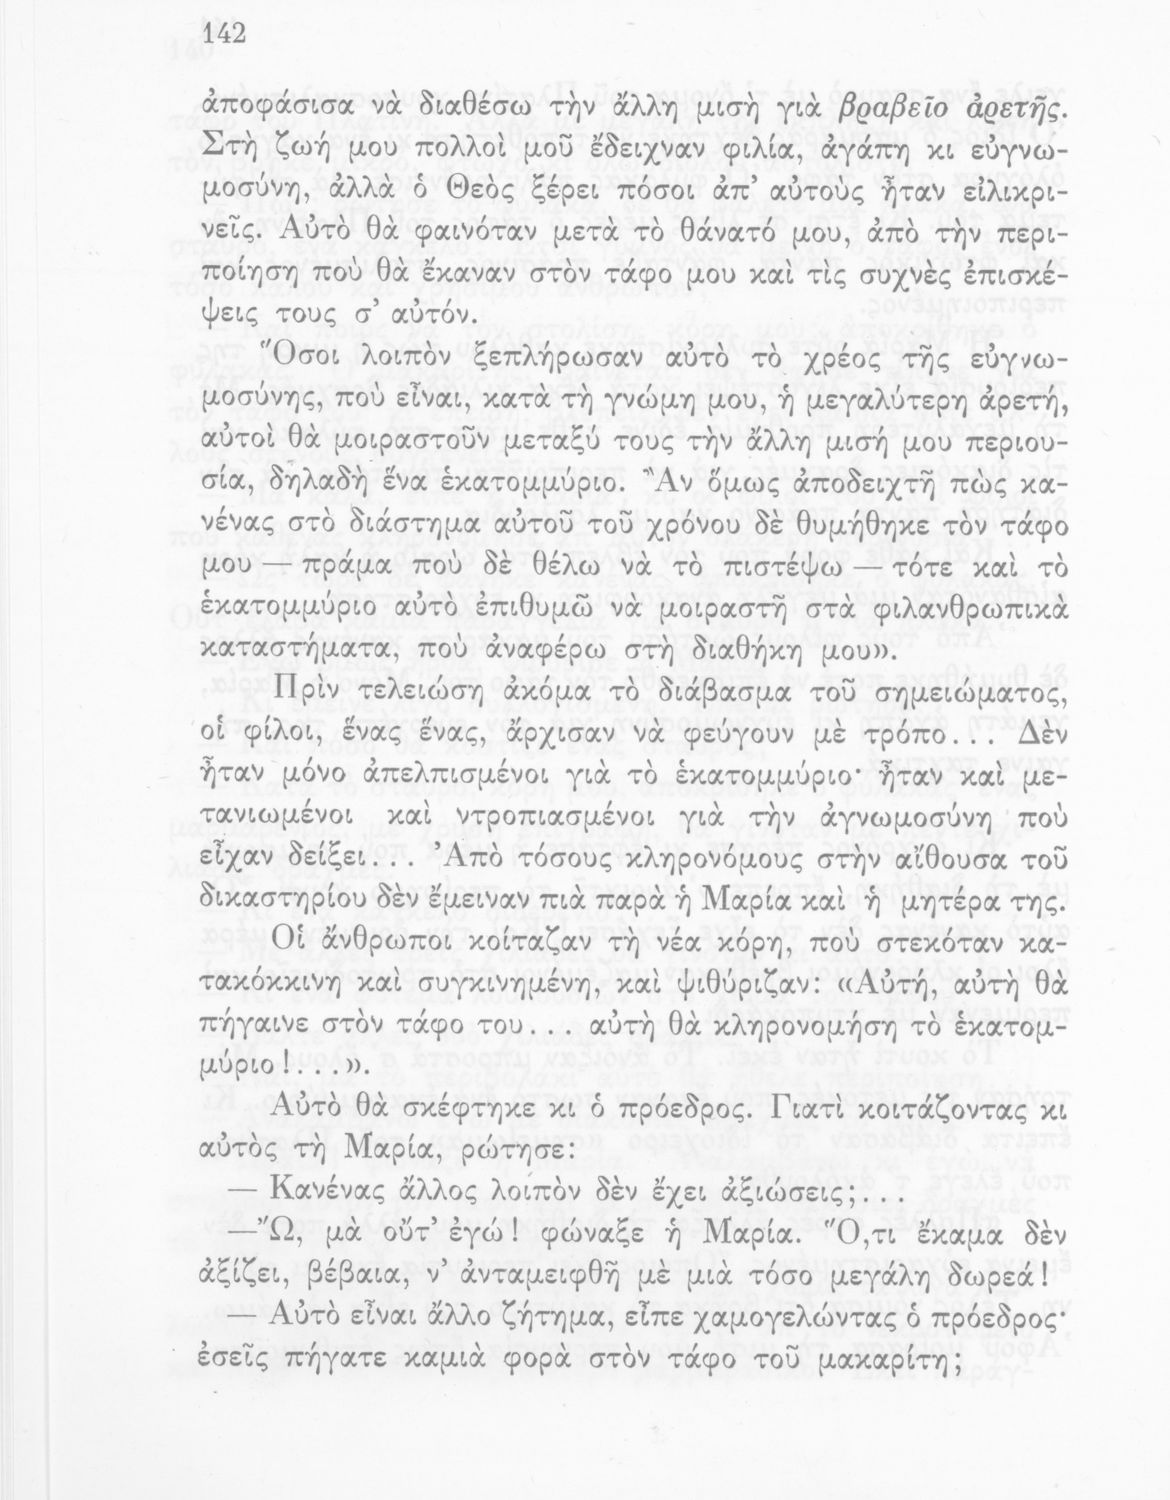 142
ἀποφάσισα νὰ διαθέσω τὴν ἄλλη μισὴ γιὰ βραβεῖο ἀρετῆς.
Στὴ ζωή μου πολλοὶ μοῦ ἔδειχναν φιλία, ἀγάπη κι εὐγνω-
μοσύνη, ἀλλὰ ὁ Θεὸς ξέρει πόσοι ἀπ’ αὐτοὺς ἦταν εἰλικρι-
νεῖς. Αὐτὸ θὰ φαινόταν μετὰ τὸ θάνατό μου, ἀπὸ τὴν περι-
ποίηση ποὺ θὰ ἔκαναν στὸν τάφο μου καὶ τὶς συχνὲς ἐπισκέ-
ψεις τους σ’ αὐτόν.
Ὅσοι λοιπὸν ξεπλήρωσαν αὐτὸ τὸ χρέος τῆς εὐγνω-
μοσύνης, ποὺ εἶναι, κατὰ τὴ γνώμη μου, ἡ μεγαλύτερη ἀρετή,
αὐτοὶ θὰ μοιραστοῦν μεταξύ τους τὴν ἄλλη μισή μου περιου-
σία, δηλαδὴ ἕνα ἑκατομμύριο. Ἂν ὅμως ἀποδειχτῆ πὼς κα-
νένας στὸ διάστημα αὐτοῦ τοῦ χρόνου δὲ θυμήθηκε τὸν τάφο
μου — πράμα ποὺ δὲ θέλω νὰ τὸ πιστέψω — τότε καὶ τὸ
ἑκατομμύριο αὐτὸ ἐπιθυμῶ νὰ μοιραστῆ στὰ φιλανθρωπικὰ
καταστήματα, ποὺ ἀναφέρω στὴ διαθήκη μου».
Πρὶν τελειώση ἀκόμα τὸ διάβασμα τοῦ σημειώματος,
οἱ φίλοι, ἕνας ἕνας, ἄρχισαν νὰ φεύγουν μὲ τρόπο... Δὲν
ἦταν μόνο ἀπελπισμένοι γιὰ τὸ ἑκατομμύριο· ἦταν καὶ με-
τανιωμένοι καὶ ντροπιασμένοι γιὰ τὴν ἀγνωμοσύνη ποὺ
εἶχαν δείξει... Ἀπὸ τόσους κληρονόμους στὴν αἴθουσα τοῦ
δικαστηρίου δὲν ἔμειναν πιὰ παρὰ ἡ Μαρία καὶ ἡ μητέρα της.
Οἱ ἄνθρωποι κοίταζαν τὴ νέα κόρη, ποὺ στεκόταν κα-
τακόκκινη καὶ συγκινημένη, καὶ ψιθύριζαν: «Αὐτή, αὐτὴ θὰ
πήγαινε στὸν τάφο του... αὐτὴ θὰ κληρονομήση τὸ ἑκατομ-
μύριο!...».
Αὐτὸ θὰ σκέφτηκε κι ὁ πρόεδρος. Γιατὶ κοιτάζοντας κι
αὐτὸς τὴ Μαρία, ρώτησε:
— Κανένας ἄλλος λοιπὸν δὲν ἔχει ἀξιώσεις;...
—Ὤ, μὰ οὔτ’ ἐγώ! φώναξε ἡ Μαρία. Ὅ,τι ἔκαμα δὲν
ἀξίζει, βέβαια, ν’ ἀνταμειφθῆ μὲ μιὰ τόσο μεγάλη δωρεά!
— Αὐτὸ εἶναι ἄλλο ζήτημα, εἶπε χαμογελώντας ὁ πρόεδρος·
ἐσεῖς πήγατε καμιὰ φορὰ στὸν τάφο τοῦ μακαρίτη;